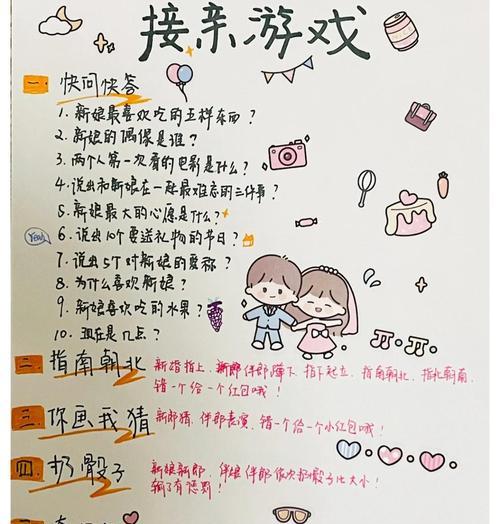 接亲游戏
一、快问快答
1. 新娘最喜欢吃的五样东西？
2. 新娘的偶像是谁？
3. 两个人第一次看的电影是什么？
4. 说出和新娘在一起最难忘的三件事？
5. 新娘最大的心愿是什么？
Yeah!
6. 说出10个要送礼物的节日？
7. 说出5个对新娘的爱称？
8. 为什么喜欢新娘？
9. 新娘喜欢吃的水果？
10. 现在是几点？
二、指南朝北
新婚指上，新郎伴郎蹲下，指下起立，指南朝北，指北朝南，
错一个给一个红包哦！
三、你画我猜
新郎猜，伴郎表演，错一个给一个小红包哦！
四、扔骰子
新娘新郎，伴娘伴郎依次扔骰子比大小！
输了有惩罚！